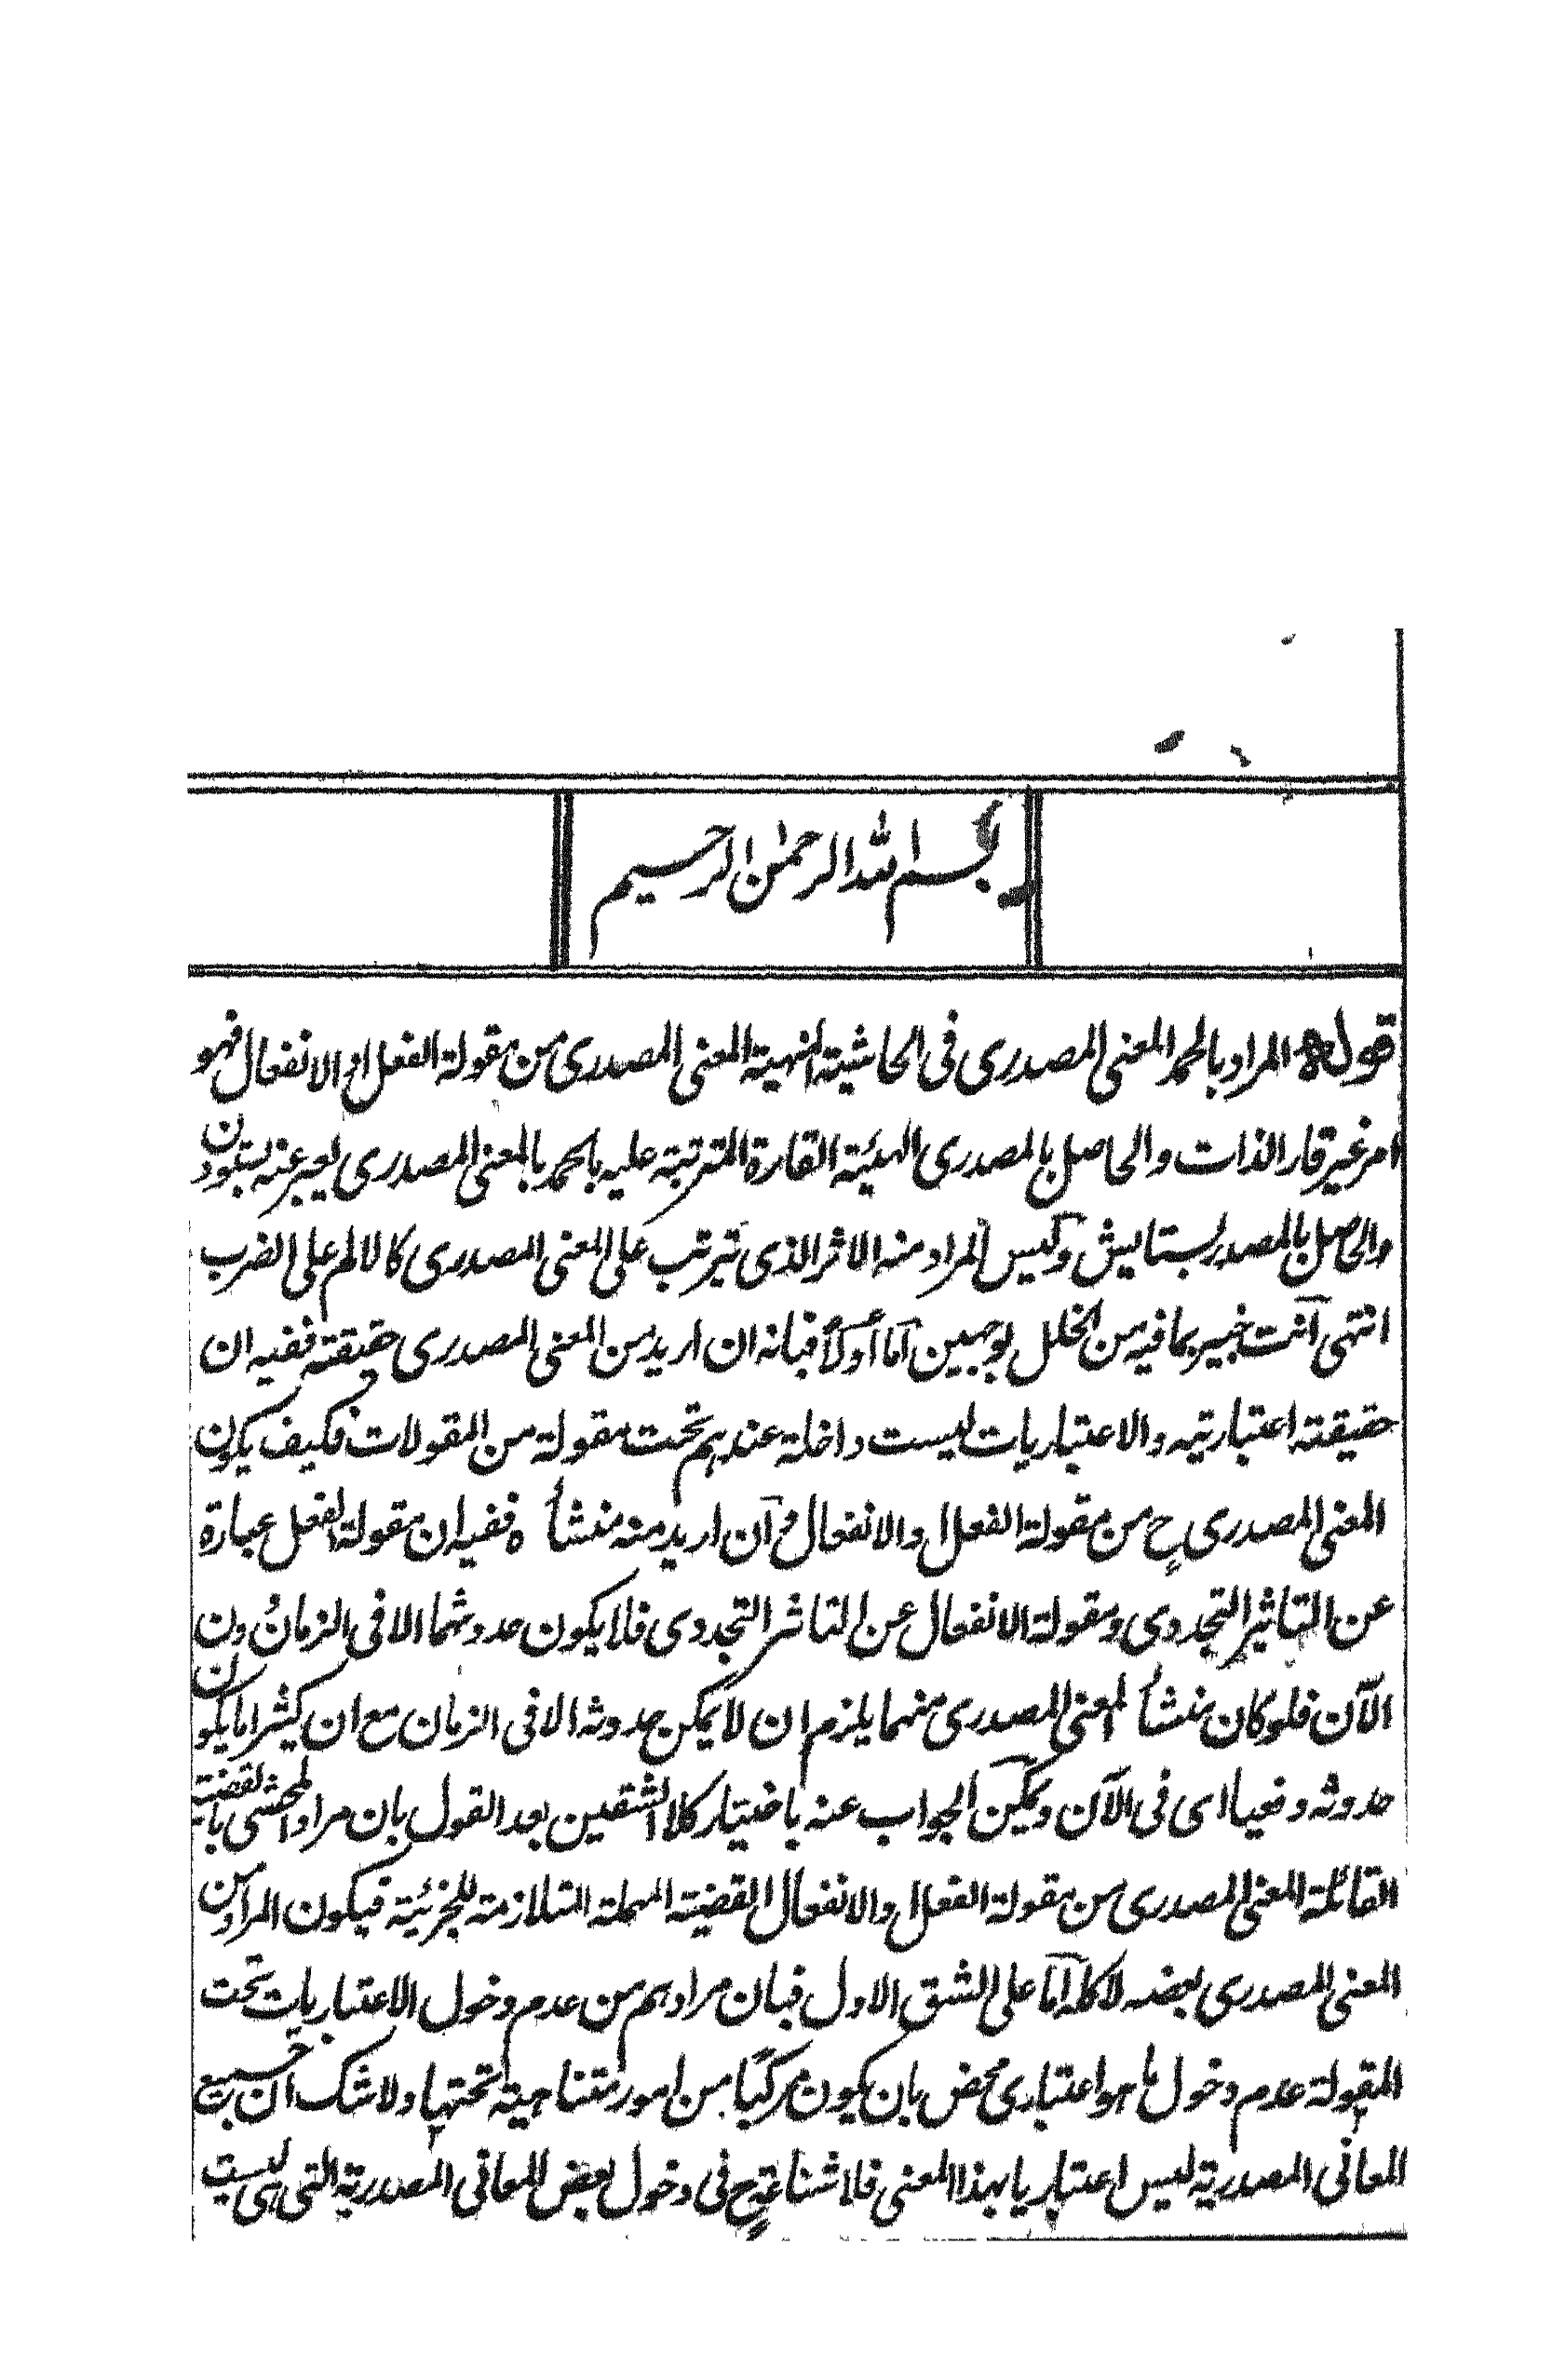 بسم الله الرحمن الرحيم
قوله المراد بالحمد المعنى المصدرى فى الحاشية المنهية المعنى المصدرى من مقولة الفعل او الانفعال فهو
امر غير قار الذات والحاصل بالمصدرى الهيئة القارة المترتبة عليه بالحمد بالمعنى المصدرى يعبر عنه بستودن
والحاصل بالمصدر بستايش وليس المراد منه الاثر الذى يترتب على المعنى المصدرى كالالم على الضرب
انتهى آنت خبير بما فيه من الخلل بوجهين آما أولاً فبانه ان اريد من المعنى المصدرى حقيقته ففيه ان
حقيقته اعتبارية والاعتباريات ليست داخلة عندهم تحت مقولة من المقولات فكيف يكون
المعنى المصدرى ح من مقولة الفعل والانفعال وآن اريد منه منشأ ه ففيه ان مقولة الفعل عبارة
عن التاثير التجددى ومقولة الانفعال عن التاثر التجددى فلا يكون حدوثهما الا فى الزمان دون
الآن فلو كان منشأ المعنى المصدرى منهما يلزم ان لا يمكن حدوثه الا فى الزمان مع ان كثيرا ما يكون
حدوثه دفعيا اى فى الآن ويمكن الجواب عنه باختيار كلا الشقين بعد القول بان مراد المحشى بالقضية
القائلة المعنى المصدرى من مقولة الفعل والانفعال القضية المهملة المتلازمة للجزئية فيكون المراد من
المعنى المصدرى بعضه لا كله آما على الشق الاول فبان مرادهم من عدم دخول الاعتباريات تحت
المقولة عدم دخول ما هو اعتبارى محض بان يكون مركبًا من امور متناهية تحتها ولا شك ان جميع
المعانى المصدرية ليس اعتباريا بهذا المعنى فلا شناعة ح فى دخول بعض المعانى المصدرية التى هى ليست